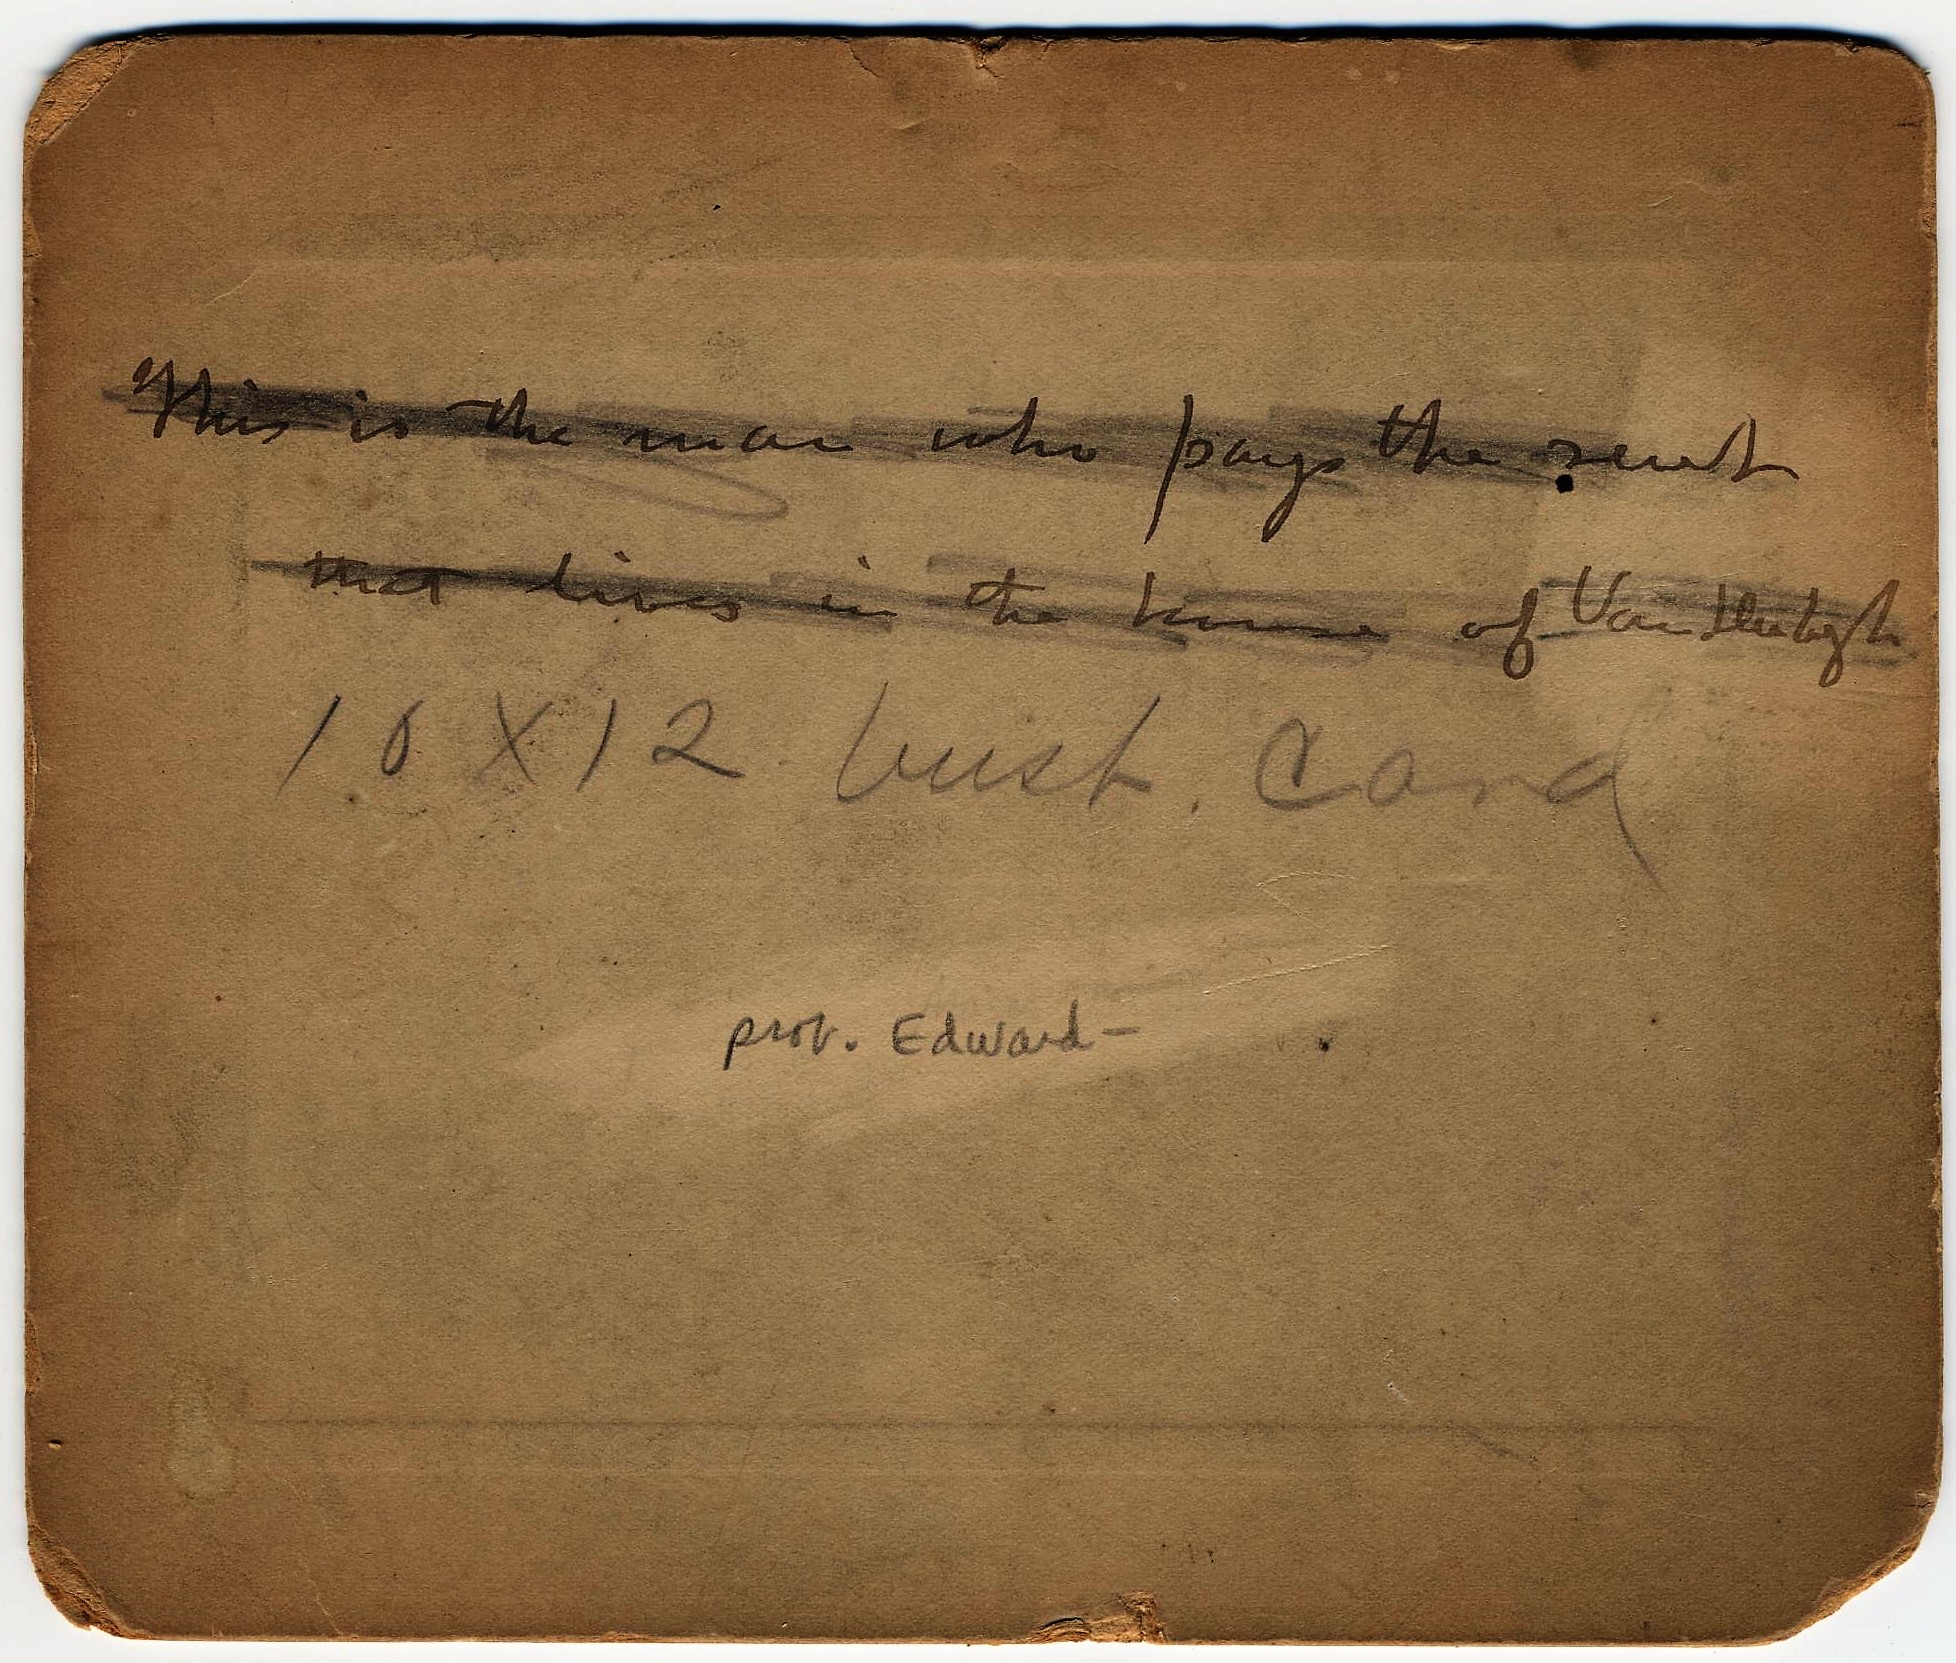 This is the man who pays the rent
that lives in the house of Van
10 X 12 bust. Card
prob. Edward-